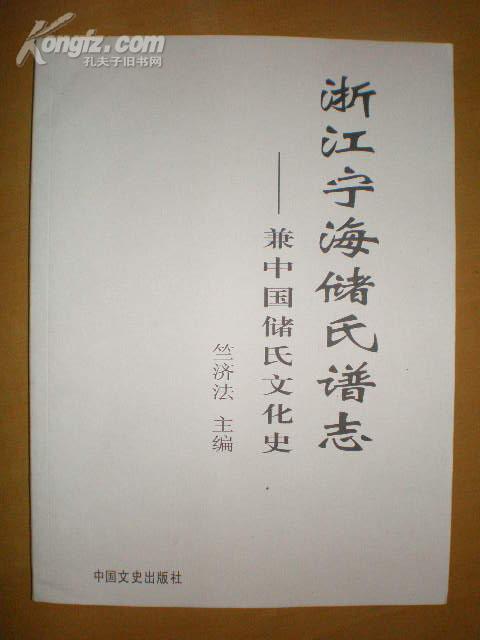 Kongfz.com
孔夫子旧书网
浙江宁海储氏谱志
——兼中国储氏文化史
竺济法 主编
中国文史出版社